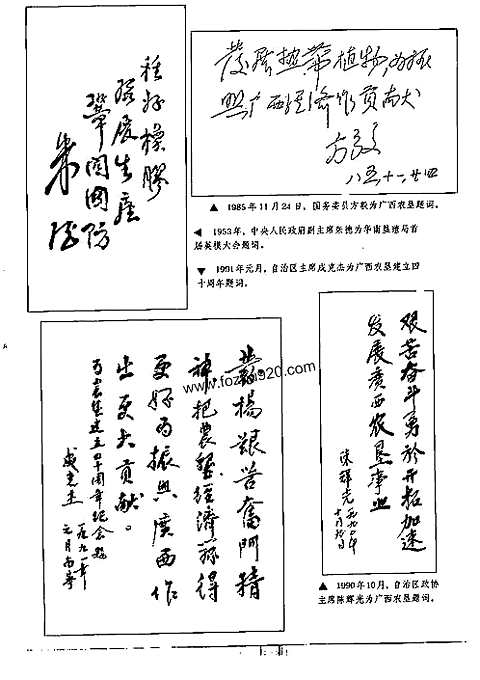 种好橡膠
發展生産
鞏固國防
朱德
發展热带植物，为振
兴广西经济作贡献
方毅
八五十一廿四
▲ 1985年11月24日，国务委员方毅为广西农垦题词。
◀ 1953年，中央人民政府副主席朱德为华南垦殖局首
届英模大会题词。
▼ 1991年元月，自治区主席成克杰为广西农垦建立四
十周年题词。
發揚艱苦奮鬥精
神，把農墾經濟搞得
更好，为振興廣西作
出更大贡献。
为農垦建立四十周年纪念题
成克杰
一九九一年
元月南寧
艰苦奋斗勇於开拓加速
发展廣西农垦事业
陈辉光一九九〇年
十月
▲ 1990年10月，自治区政协
主席陈辉光为广西农垦题词。
www.fozhi920.com